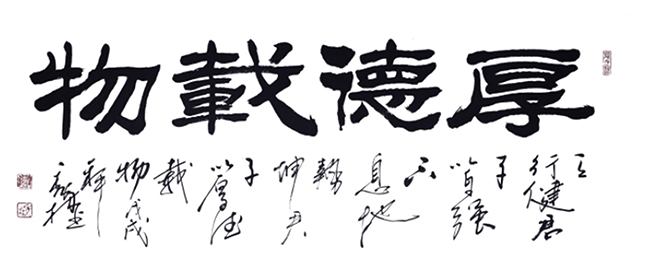 厚德載物
天
行健君
子
以自强
不
息地
勢
坤君
子
以厚德
載
物戊戌